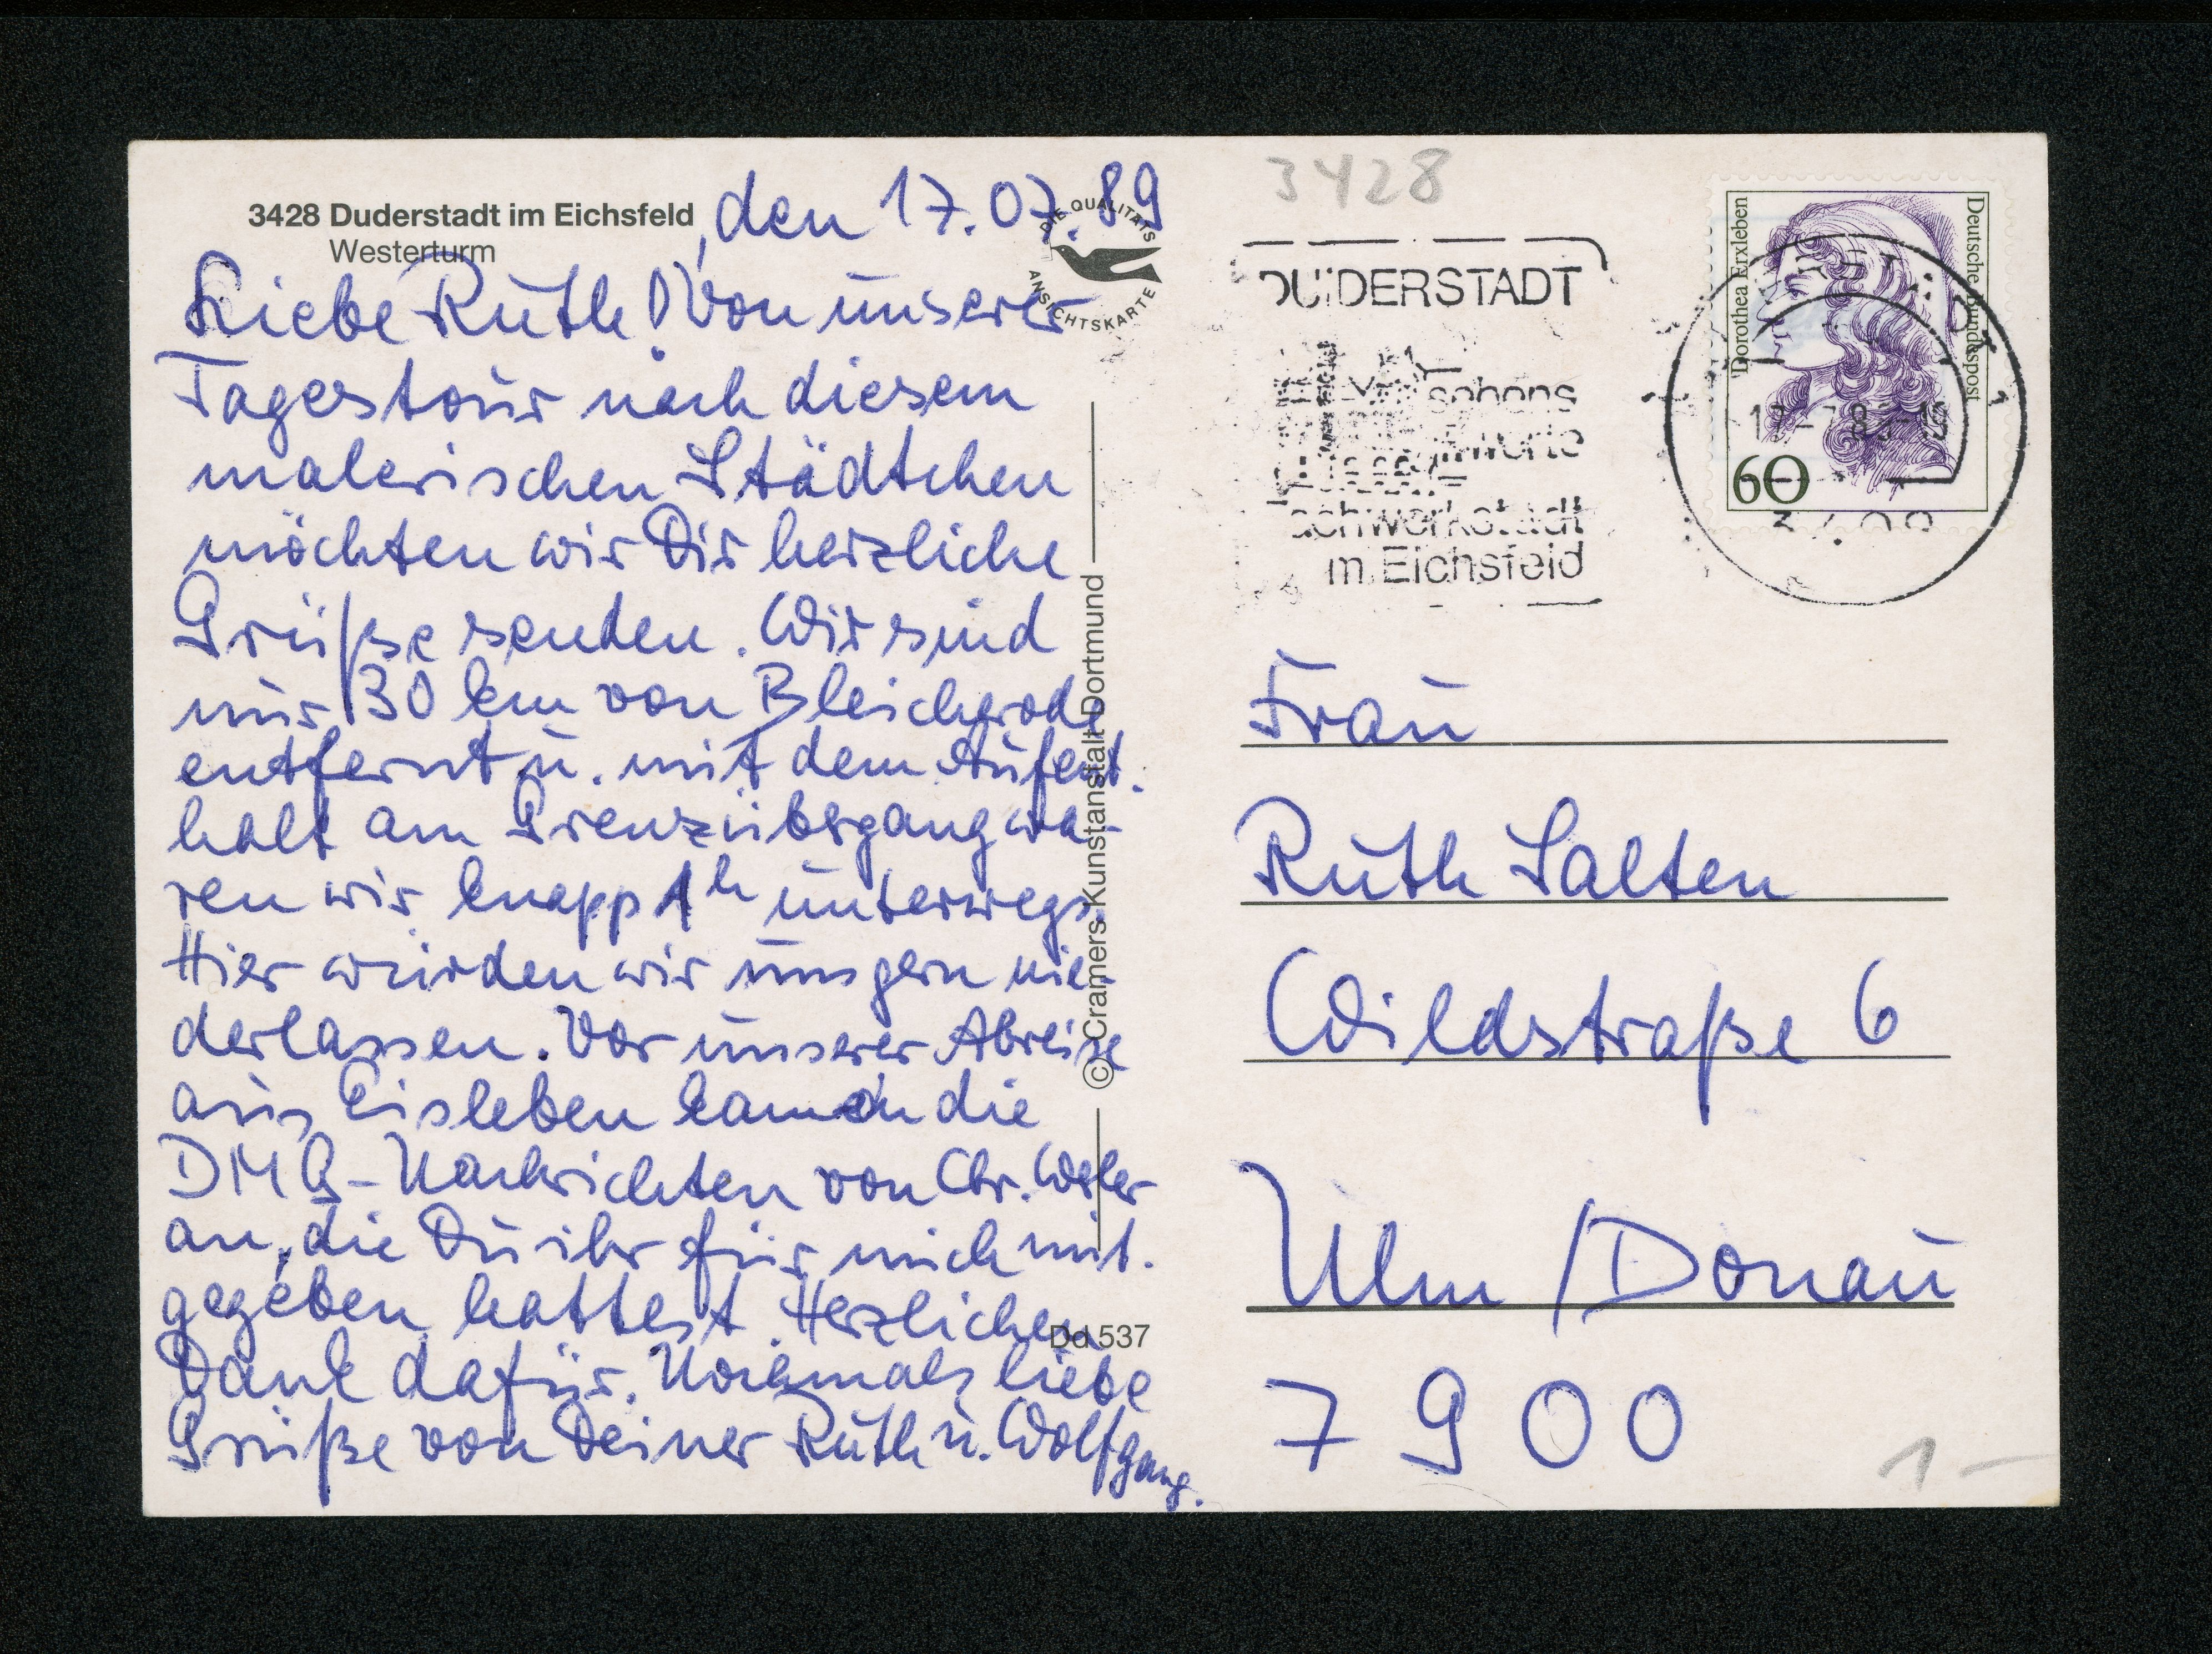 3428 Duderstadt im Eichsfeld, den 17.07.89
Westerturm
DIE QUALITÄTS
ANSICHTSKARTE
Liebe Ruth! Von unserer
Tagestour nach diesem
malerischen Städtchen
möchten wir Dir herzliche
Grüße senden. Wir sind
nur 30 km von Bleicherode
entfernt u. mit dem Aufent-
halt am Grenzübergang wa-
ren wir knapp 1h unterwegs.
Hier würden wir uns gern nie-
derlassen. Vor unserer Abreise
aus Eisleben kamen die
DMG-Nachrichten von Chr.
an, die Du ihr für mich mit-
gegeben hattest. Herzlichen
Dank dafür. Nochmals liebe
Grüße von Deiner Ruth u. Wolfgang.
© Cramers Kunstanstalt Dortmund
Dd 537
3428
DUDERSTADT
Eichsfeld
Dorothea Erxleben
Deutsche Bundespost
60
Frau
Ruth Salten
Wildstraße 6
Ulm / Donau
7900
1-